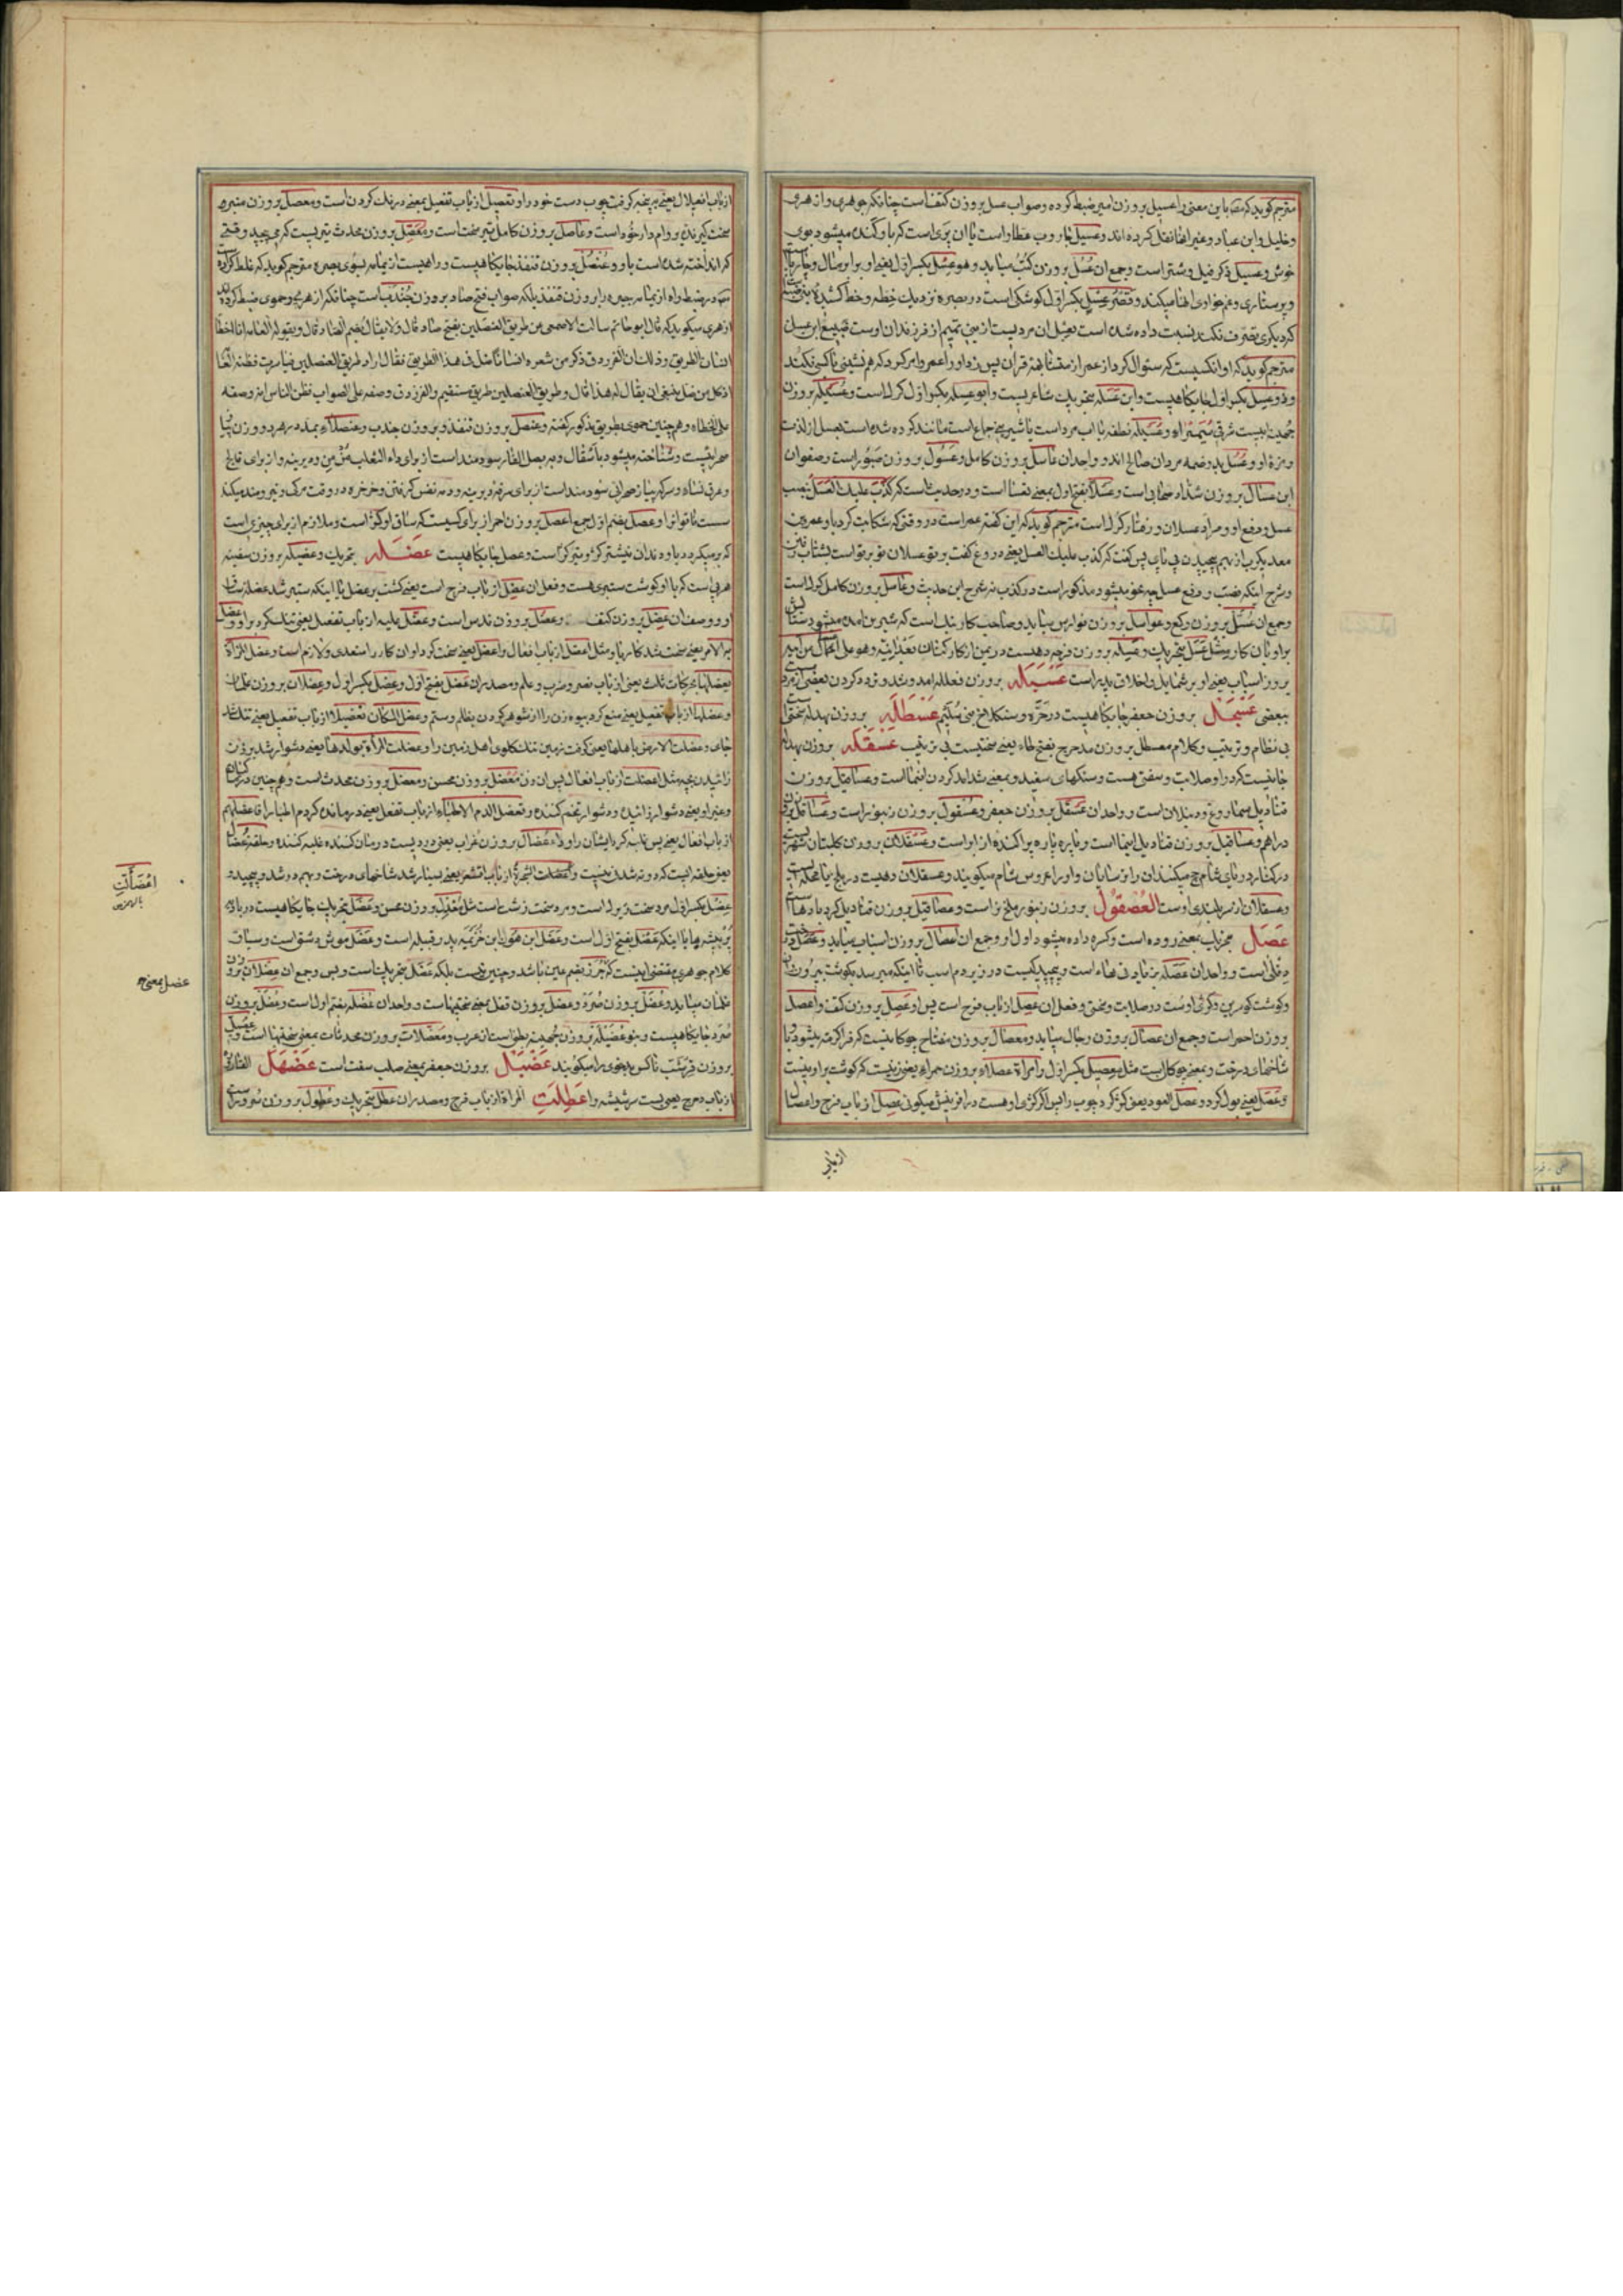 مترجم کوید که مص باین معنی را عسیل بروزن امیر ضبط کرده وصواب عسل بروزن کتف است چنانکه جوهری وازهری
وخلیل وابن عباد وغیر اینها نقل کرده اند وعسیل جاروب عطار است یا ان پری است که باو کنده میشود موی
خوش وعسیل ذکر فیل وشتر است وجمع ان عسل بروزن کتب میاید وهو عسل بکسر اول یعنی او برابر مال
وپرستاری وغم خواری انها میکند وقصر عسل بکسر اول کوشکی است در بصره نزدیک خطه
کرد دیگری تصرف نکند نسبت داده شده است بعسل ان مردیست از بنی تمیم از فرزندان اوست صبیغ ابن عسل
مترجم کوید که او انکسیست که سئوال کرد از عمر از متشابهه قران پس زد او را عمر وامر کرد که هم نشینی با کسی نکند
وذو عسل بکسر اول جایکاهیست وابن عسله بتحریک شاعریست وابو عسله بکسر اول کرک است وعسیله بروزن
جهینه ابیست شرقی سمیراء وعسیله نطفه یا اب مرد است یا شیرینی جماع است مانند کرده شده است بعسل از لذت
ومزه او وعسل بدو ضمه مردان صالح اند وواحد ان عاسل بروزن کامل وعسول بروزن صبور است وصفوان
ابن عسال بروزن شداد صحابی است وعسلا بفتح اول بمعنی تعسا است ودر حدیث است که کذب علیک العسل بنصب
عسل ورفع او ومراد عسلان ورفتار کرک است مترجم کوید که این کفته عمر است در وقتی که شکایت کرد باو عمرو بن
معدیکرب از بهم پیچیدن پی پای پس کفت که کذب علیک العسل یعنی دروغ کفت بر تو عسلان تو بر تو است بشتاب رفتن
وشرح اینکه نصب ورفع عسل چه نحو میشود مذکور است در کذب در شرح این حدیث وعاسل بروزن کامل کرک است
وجمع ان عسل بروزن رکع وعواسل بروزن فوارس میاید وصاحب کار نیک است که شیرین امده میشود
بر او بان کار ومثل عسل بتحریک وعسیله بروزن
بروزن اسباب یعنی او بر شمایل واخلاق پدر است عسبله بروزن فعلله امد وشد ونزد کردن بعضی از مردم
ببعضی عسجل بروزن جعفر جایکاهیست در حره وسنکلاخ بنی سلیم عسطله بروزن بهدله سخن
بی نظام وترتیب وکلام معسطل بروزن مدحرج بفتح طاء یعنی سخنیست بی ترتیب عسقله بروزن بهدله
جائیست که در او صلابت وسفتی هست وسنکهای سفید وبمعنی شداید کردن انها است وعساقیل بروزن
قنادیل سماروغ است وواحد ان عسقل بروزن جعفر وعسقول بروزن زنبور است
دراهم وعساقیل بروزن قنادیل اینها است وپاره پاره پراکنده از ابر است وعسقلان بروزن کلبتان شهریست
در کنار دریای شام حج میکنند ان را ترسایان واو را عروس شام میکویند وعسقلان دهیست در بلخ یا محله
وعسقلان از سر بلندی اوست العصقول بروزن زنبور ملخ نر است وعصاقیل بروزن قنادیل کردبادها است
عصل بتحریک بمعنی روده است وکسره داده میشود اول او وجمع ان اعصال بروزن اسباب میاید
دفلی است وواحد ان عصله بزیادتی هاء است وپیچیدکیست در زیر دم اسب تا اینکه میرسد بکوشت بیرون
وکوشت کون پس وکژی اوست در صلابت وسختی وفعل ان عصل از باب فرح است پس او عصل بروزن کتف واعصل
بروزن احمر است وجمع ان عصال بروزن رجال میاید ومعصال بروزن مفتاح چوکانیست که فرا کرفته میشود با
شاخهای درخت وبمعنی چوکان است مثل معصیل بکسر اول وامراة عصلاء بروزن حمراء یعنی زنیست که کوشت بر او نیست
وعصل یعنی بول کرد وعصل العود یعنی کژ کرد چوب را پس اکر کژی او هست در افرینش میکوئی عصل از باب فرح واعصال
از باب
از باب افعیلال یعنی به پنجه کرفت چوب دست خود را وتعصیل از باب تفعیل بمعنی درنک کردن است ومعصل بروزن منبر مرد
سخت کیرنده بر وام دار خود است وعاصل بروزن کامل تیر سخت است ومعصل بروزن محدث تیریست که می پیچد وقتی
که انداخته شده است باو وعنصل بروزن قنفذ جایکاهیست وراهیست از یمامه بسوی بصره مترجم کوید که غلط کرده
مص در ضبط راه از یمامه ببصره را بروزن قنفذ بلکه صواب فتح صاد بروزن جندب است چنانکه ازهری وحموی ضبط کرده اند
ازهری میکوید که قال ابو حاتم سالت الاصمعی عن طریق العنصلین بفتح صاد قال ولا یقال بضم الصاد قال ویقوله العامة اذا اخطا
انسان الطریق وذلک ان الفرزدق ذکر من شعره انسانا ضل فی هذا الطریق فقال اراد طریق العنصلین فیاسرت فظنه العامة
ان کل من ضل ینبغی ان یقال له هذا قال وطریق العنصلین طریق مستقیم والفرزدق وصفه علی الصواب فظن الناس انه وصفه
علی الخطاء وهم چنین حموی بطریق مذکور کفته وعنصل بروزن قنفذ وبروزن جندب وعنصلاء بمد در هر دو وزن پیاز
صحرائیست وشناخته میشود باسقال وببصل الفار سودمند است از برای داء الثعلب مزمن ودیرینه واز برای فالج
وعرق نساء وسرکه پیاز صحرائی سودمند است از برای سرفه دیرینه وربو نفس کرفتن وخرخره در وقت مرک ونیرومند میکند
سست ناتوان را وعصل بضم اول جمع اعصل بروزن احمر از برای کسیست که ساق او کژ است وملازم از برای چیزی است
که بر میکردد باو ودندان نیشتر کژ وتیر کژ است وعصل جایکاهیست عضله بتحریک وعضیله بروزن سفینه
هر پی است که با او کوشت ستبری هست وفعل ان عضل از باب فرح است یعنی کشت پر عضل یا اینکه ستبر شد عضله ساق
او ووصف ان عضل بروزن کتف وعضل بروزن ندس است وعضل علیه از باب تفعیل یعنی تنک کرد بر او
به الامر یعنی سخت شد کار باو مثل اعضل از باب افعال واعضل یعنی سخت کرد او ان کار را متعدی ولازم است وعضل المراة
یعضلها بحرکات ثلث یعنی از باب نصر وضرب وعلم ومصدر ان عضل بفتح اول وعضل بکسر اول وعضلان بروزن
وعضلها از باب تفعیل یعنی منع کرد بیوه زن را از شوهر کردن بظلم وستم وعضل المکان تعضیلا از باب تفعیل یعنی تنک شد
جای وعضلت الارض باهلها یعنی کرفت زمین تنک کلوی اهل زمین را وعضلت المراة بولدها یعنی دشوار شد بر زن
زائیدن بچه مثل اعضلت از باب افعال پس ان زن معضل بروزن محسن ومعضل بروزن محدث است وهم چنین
وغیر او یعنی دشوار زائیده ودشوار تخم کننده وتعضل الداء الاطباء از باب تفعل یعنی درمانده کرد مرض اطبا را واعضلهم
از باب افعال یعنی پس غلبه کرد ایشان را وداء عضال بروزن غراب یعنی دردیست درمان کننده غلبه کننده وحلقه عضال
یعنی حلقه ایست که در نه شدنی نیست واعضالت الشجرة از باب اقشعر یعنی بسیار شد شاخهای درخت وبهم در شد وپیچیده
عضل بکسر اول مرد سخت زیرک است ومرد سخت زشت است مثل معضل بروزن محسن وعضل بتحریک جایکاهیست در بادیه
پر بیشه ها یا اینکه عضل بفتح اول است وعضل ابن هون ابن خزیمه پدر قبیله است وعضل موش دشتی است وسیاق
کلام جوهری مقتضی اینست که جرذ بضم عین باشد وچنین نیست بلکه عضل بتحریک است وبس وجمع ان عضلان بروزن
غلمان میاید وعضل بروزن صرد وعضل بروزن قفل بمعنی سختیها است وواحد ان عضله بضم اول است وعضل بروزن
صرد جایکاهیست وبنو عضیله بروزن جهینه بطنی است از عرب ومعضلات بروزن محدثات بمعنی سختیها است
بروزن قرشب ناکس بدخوی را میکویند عضبل بروزن جعفر بمعنی صلب سفت است عضهل القارورة
از باب دحرج یعنی بست سر شیشه را عطلت المراة از باب فرح ومصدر ان عطل بتحریک وعطول بروزن سرور است
اعضألت
بالهمزه
عضل بمعنی